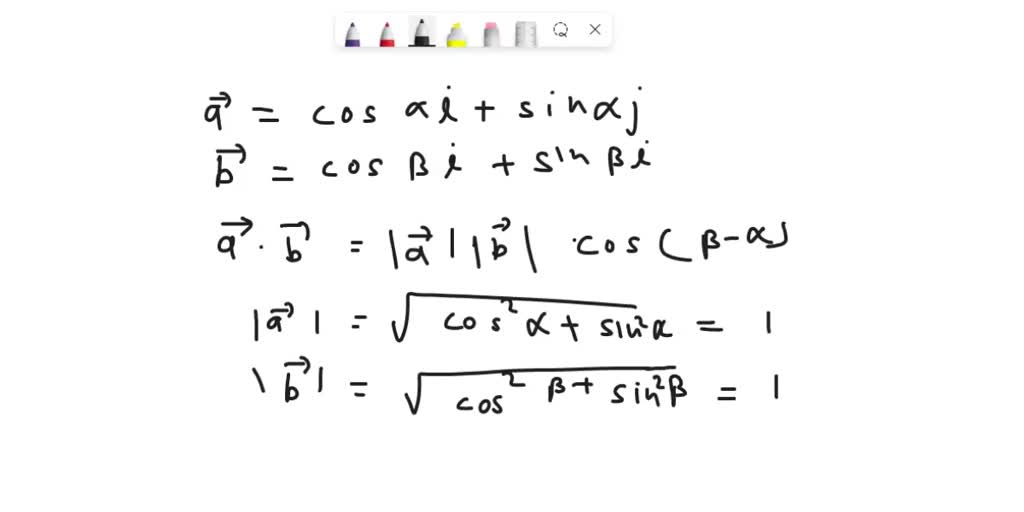 a⃗ = cos α i + sin α j
b⃗ = cos β i + sin β i
a⃗ · b⃗ = |a⃗| |b⃗| · cos (β - α)
|a⃗| = √(cos² α + sin² α) = 1
|b⃗| = √(cos² β + sin² β) = 1